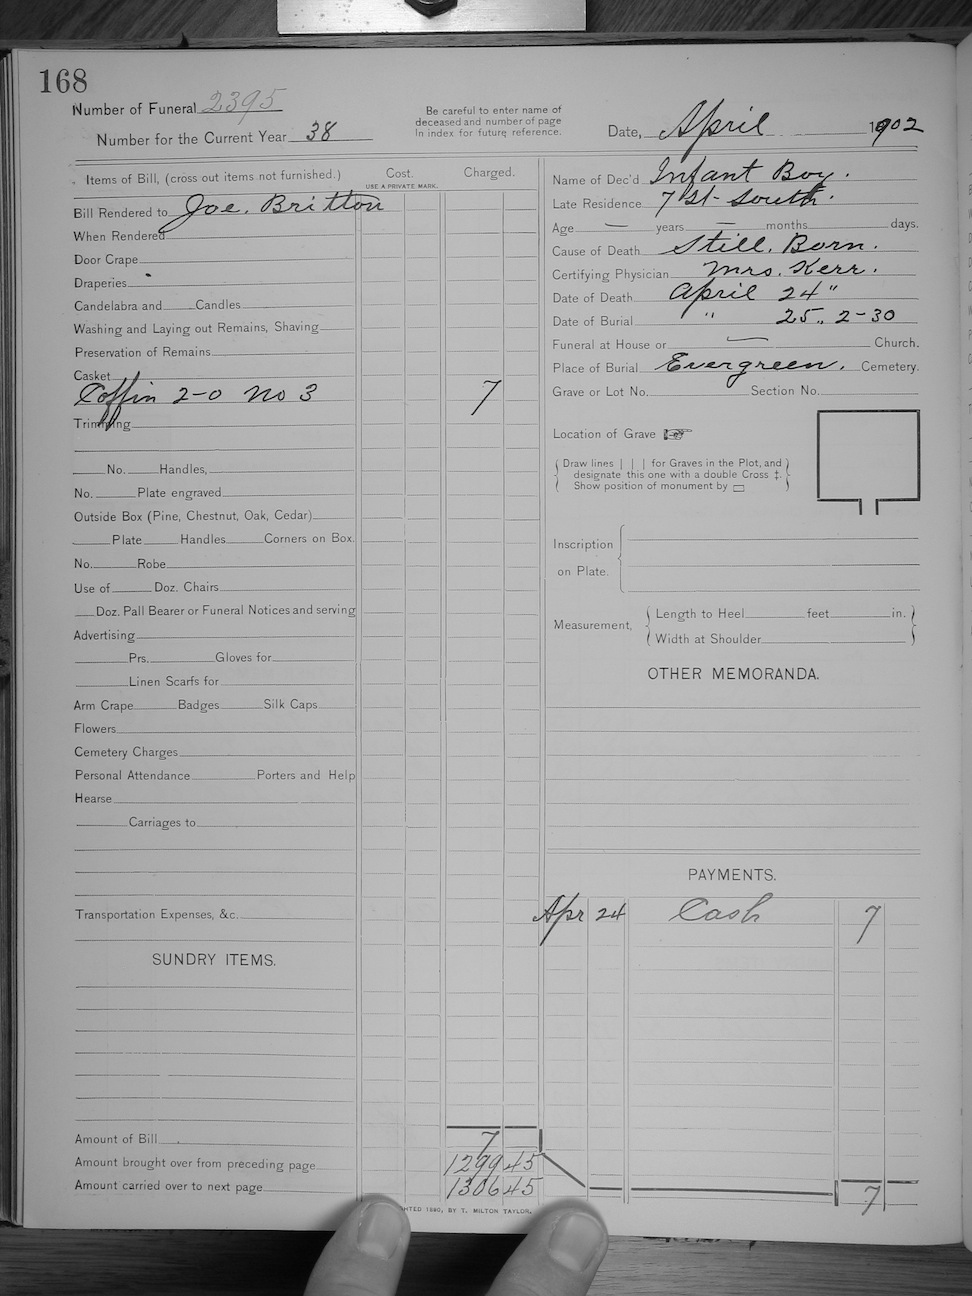 168
Number of Funeral 2395
Number for the Current Year 38
Be careful to enter name of
deceased and number of page
in index for future reference.
Date, April 1902
Items of Bill, (cross out items not furnished.)
Cost.
USE A PRIVATE MARK.
Charged.
Bill Rendered to Joe. Britton
When Rendered
Door Crape
Draperies
Candelabra and Candles
Washing and Laying out Remains, Shaving
Preservation of Remains
Casket
Coffin 2-0 No 3 7
Trimming
No. Handles,
No. Plate engraved
Outside Box (Pine, Chestnut, Oak, Cedar)
Plate Handles Corners on Box.
No. Robe
Use of Doz. Chairs
Doz. Pall Bearer or Funeral Notices and serving
Advertising
Prs. Gloves for
Linen Scarfs for
Arm Crape Badges Silk Caps
Flowers
Cemetery Charges
Personal Attendance Porters and Help
Hearse
Carriages to
Transportation Expenses, &c.
SUNDRY ITEMS.
Amount of Bill 7
Amount brought over from preceding page 1299 45
Amount carried over to next page 1306 45
Name of Dec'd Infant Boy.
Late Residence 7 St- South.
Age — years — months days.
Cause of Death Still. Born.
Certifying Physician Mrs. Kerr.
Date of Death April 24"
Date of Burial " 25., 2-30
Funeral at House or — Church.
Place of Burial Evergreen. Cemetery.
Grave or Lot No. Section No.
Location of Grave ☞
Draw lines | | | for Graves in the Plot, and
designate this one with a double Cross ‡.
Show position of monument by ▭
Inscription
on Plate.
Measurement,
Length to Heel feet in.
Width at Shoulder
OTHER MEMORANDA.
PAYMENTS.
Apr 24 Cash 7
7
HTED 1890, BY T. MILTON TAYLOR.